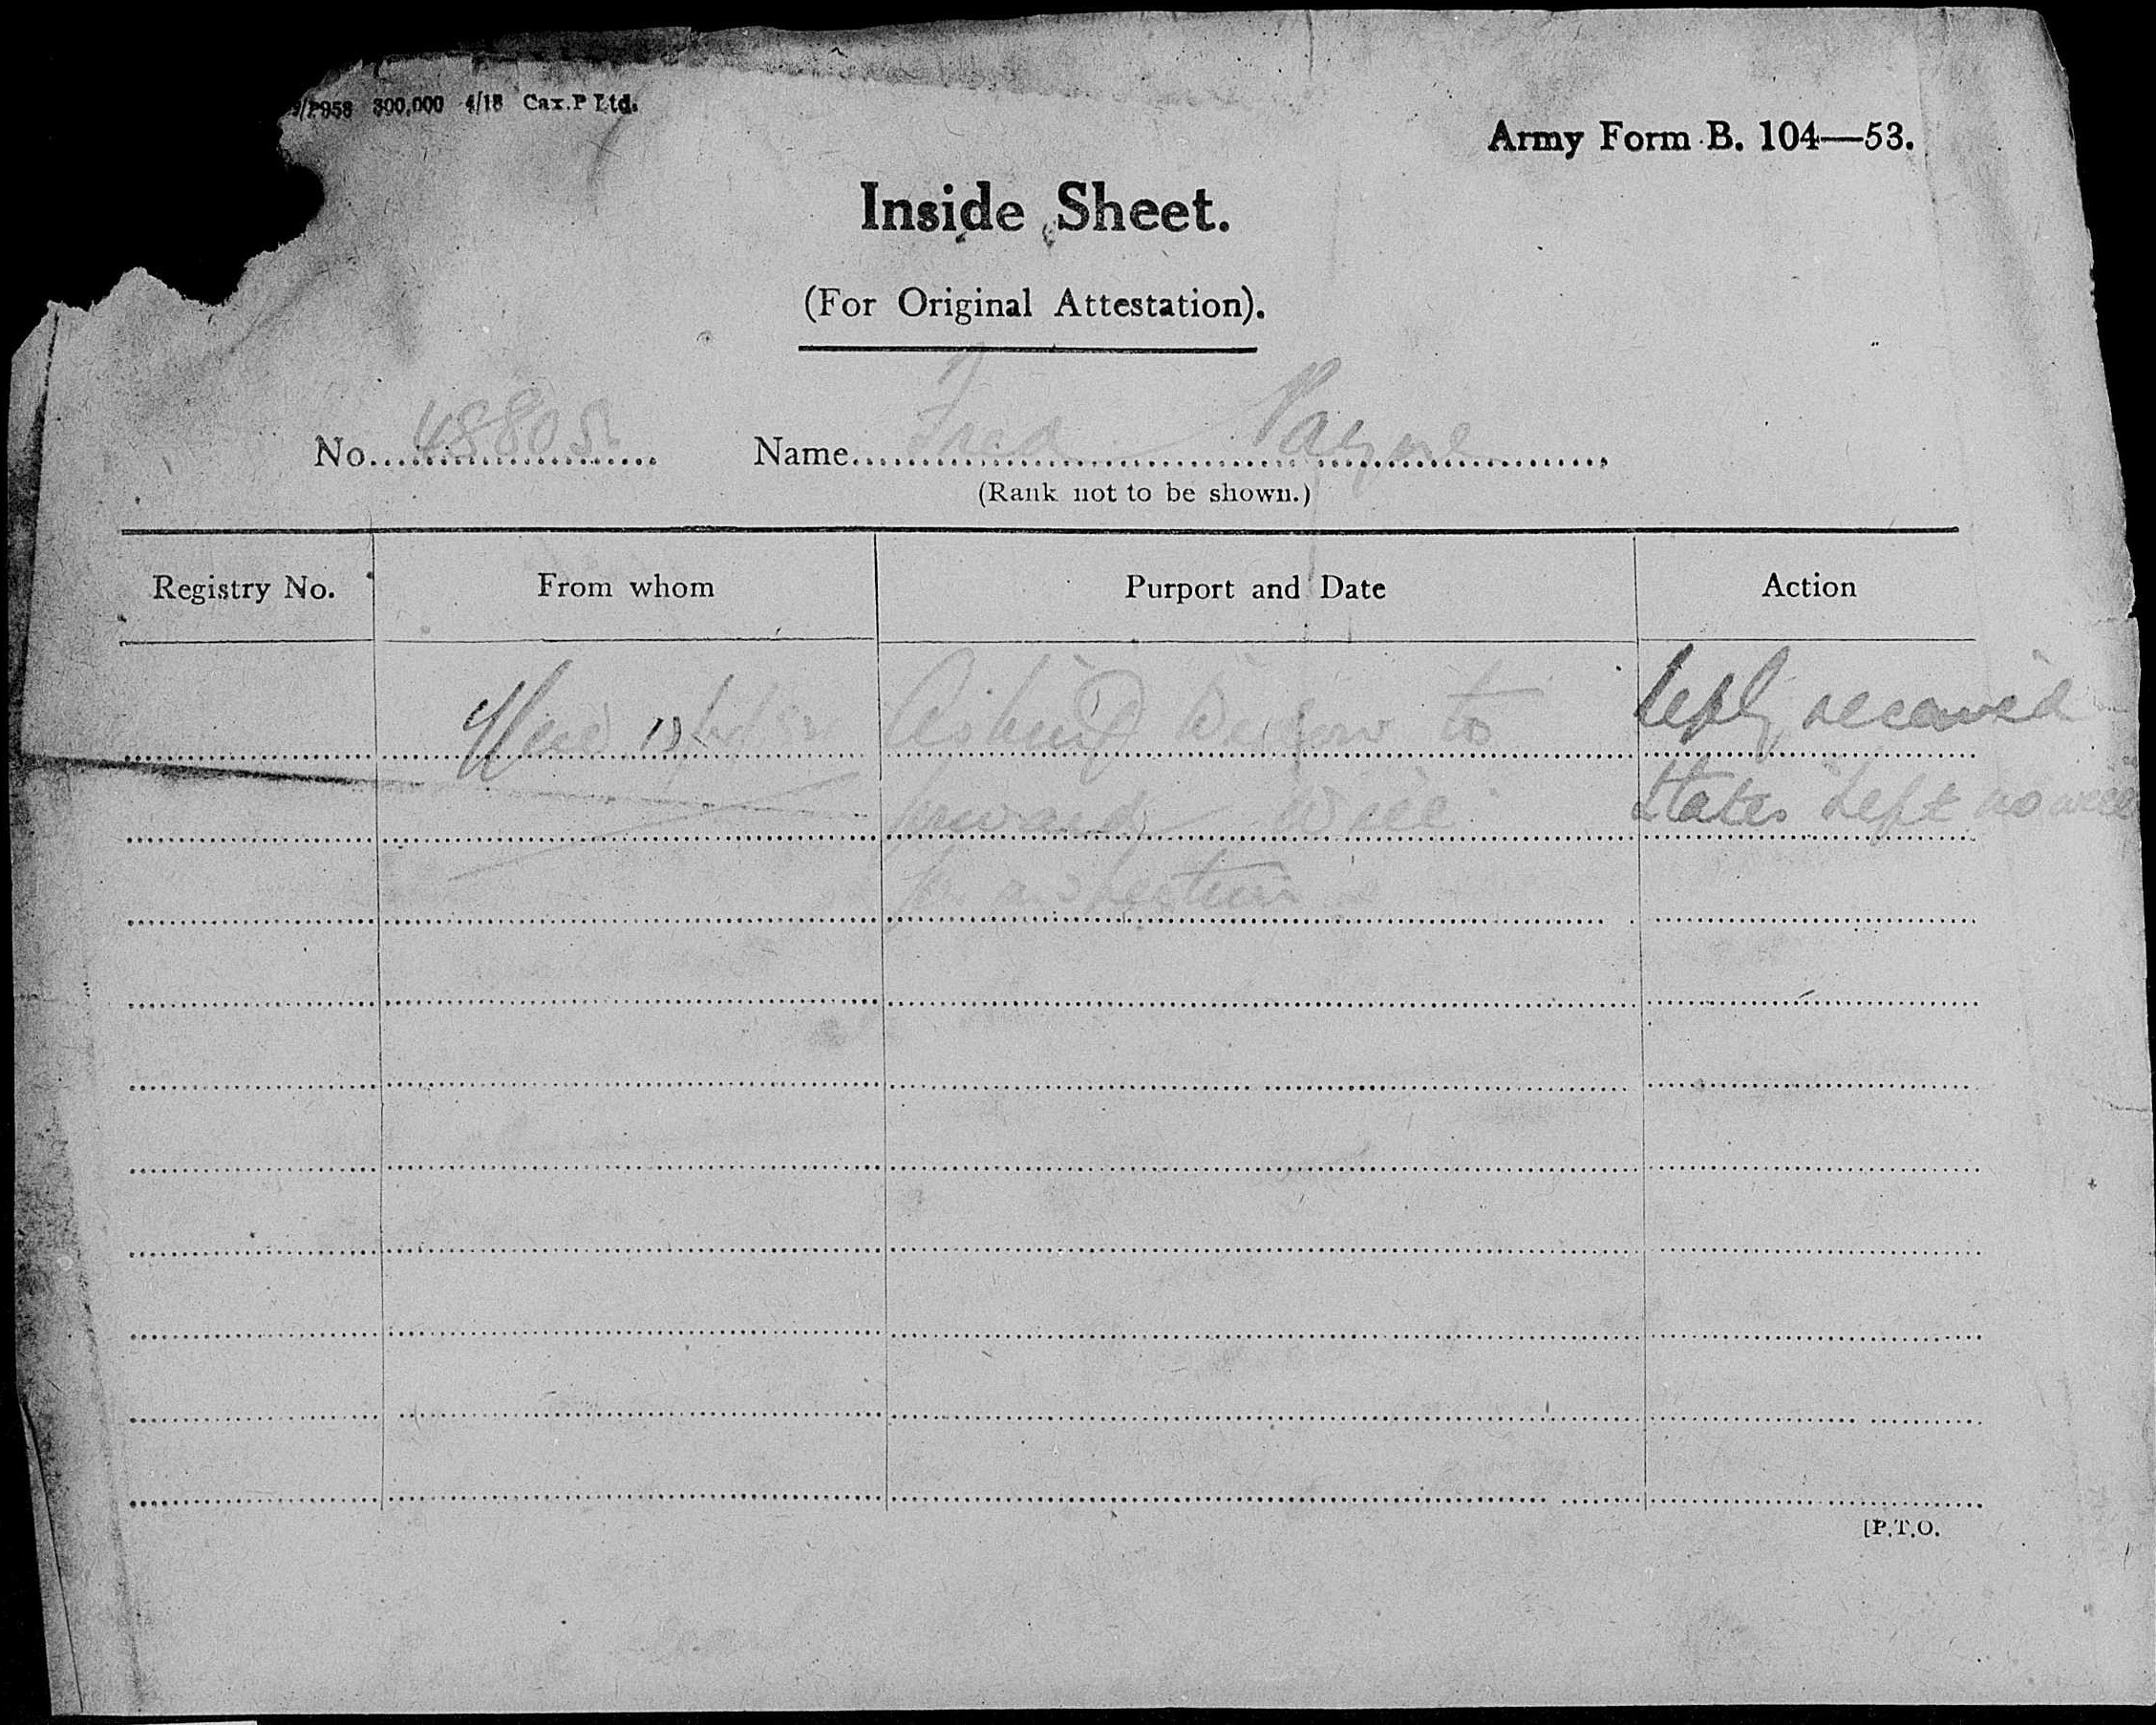 /P958 300,000 4/18 Cax.P Ltd.
Army Form B. 104—53.
Inside Sheet.
(For Original Attestation).
No. 48805 Name Fred Payne
(Rank not to be shown.)
Registry No. From whom Purport and Date Action
Asking Widow to reply received
forward Will States left no will
for inspection
[P.T.O.